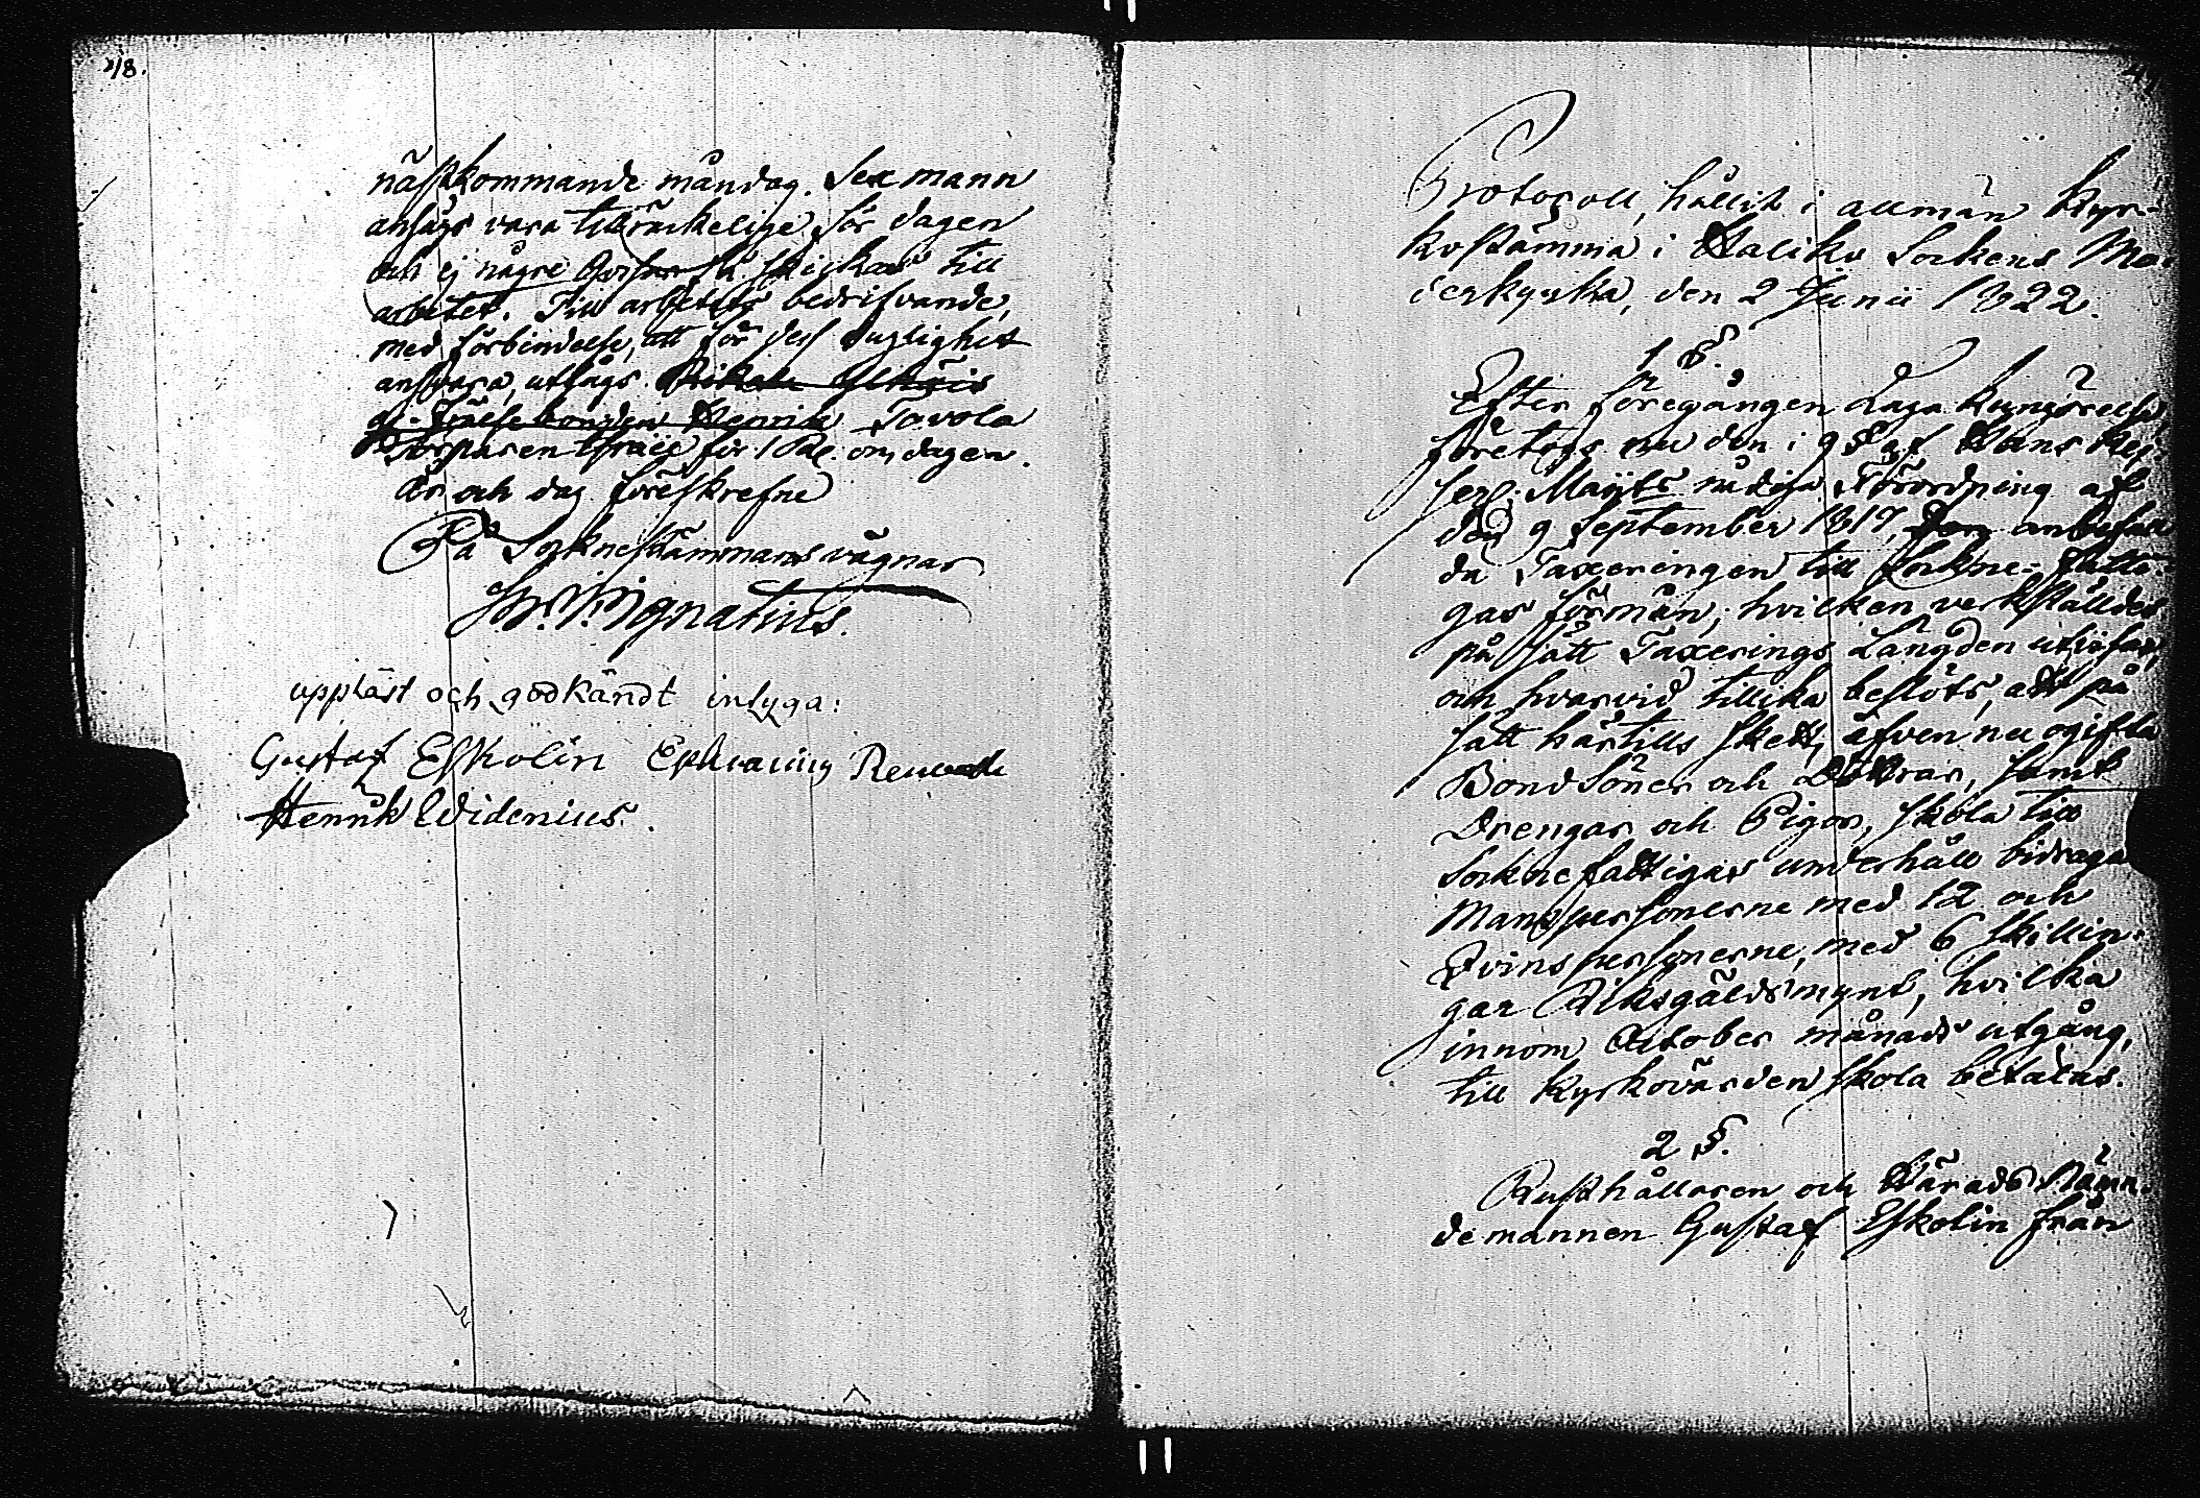 218.
nästkommande måndag. Sex mann
ansågs vara tillräckelige för dagen
och ej någre Qvinnor få skickas till
arbetet. Till arbetets bedrifvande,
med förbindelse, att för dess duglighet
ansvara, utsågs
Frälsebonden Henrik Tavola
Torparen för 1 Rd. om dagen.
År och dag föreskrefne
På Sockneståmmans vägnar
Ignatius.
uppläst och godkändt intyga:
Gustaf Eskolin Ephraim
Henrik Widenius.
Protocoll, hållit i allmän Kyr-
kostämma i Haliko Sockens Mo-
derkyrka, den 2 Junii 1822.
1 §.
Efter föregången Laga Kungörelse,
företogs nu den i 9 § af Hans Kej-
serl: Maj:ts nådiga Förordning af
den 9 September 1817, anbefall-
da Taxeringen till Sockne-fatti-
gas förmån; hvilken verkställdes
på sätt Taxerings Längden utvisar,
och hvarvid tillika beslöts, att på
sätt härtills skett, äfven nu ogifta
Bondsöner och Döttrar, samt
Drengar och Pigor, skola till
Sockne fattigas underhåll bidraga
Manspersonerne med 12 och
Qvinspersonerne, med 6 skillin-
gar Riksgäldsmynt, hvilka
innom October månads utgång,
till Kyrkovärden skola betalas.
2 §.
Rusthållaren och Härads Nämn-
demannen Gustaf Eskolin från